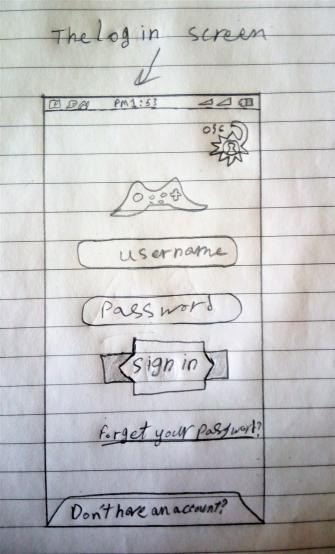 The log in screen
PM 1:53
username
Password
sign in
Forget your password?
Don't have an account?